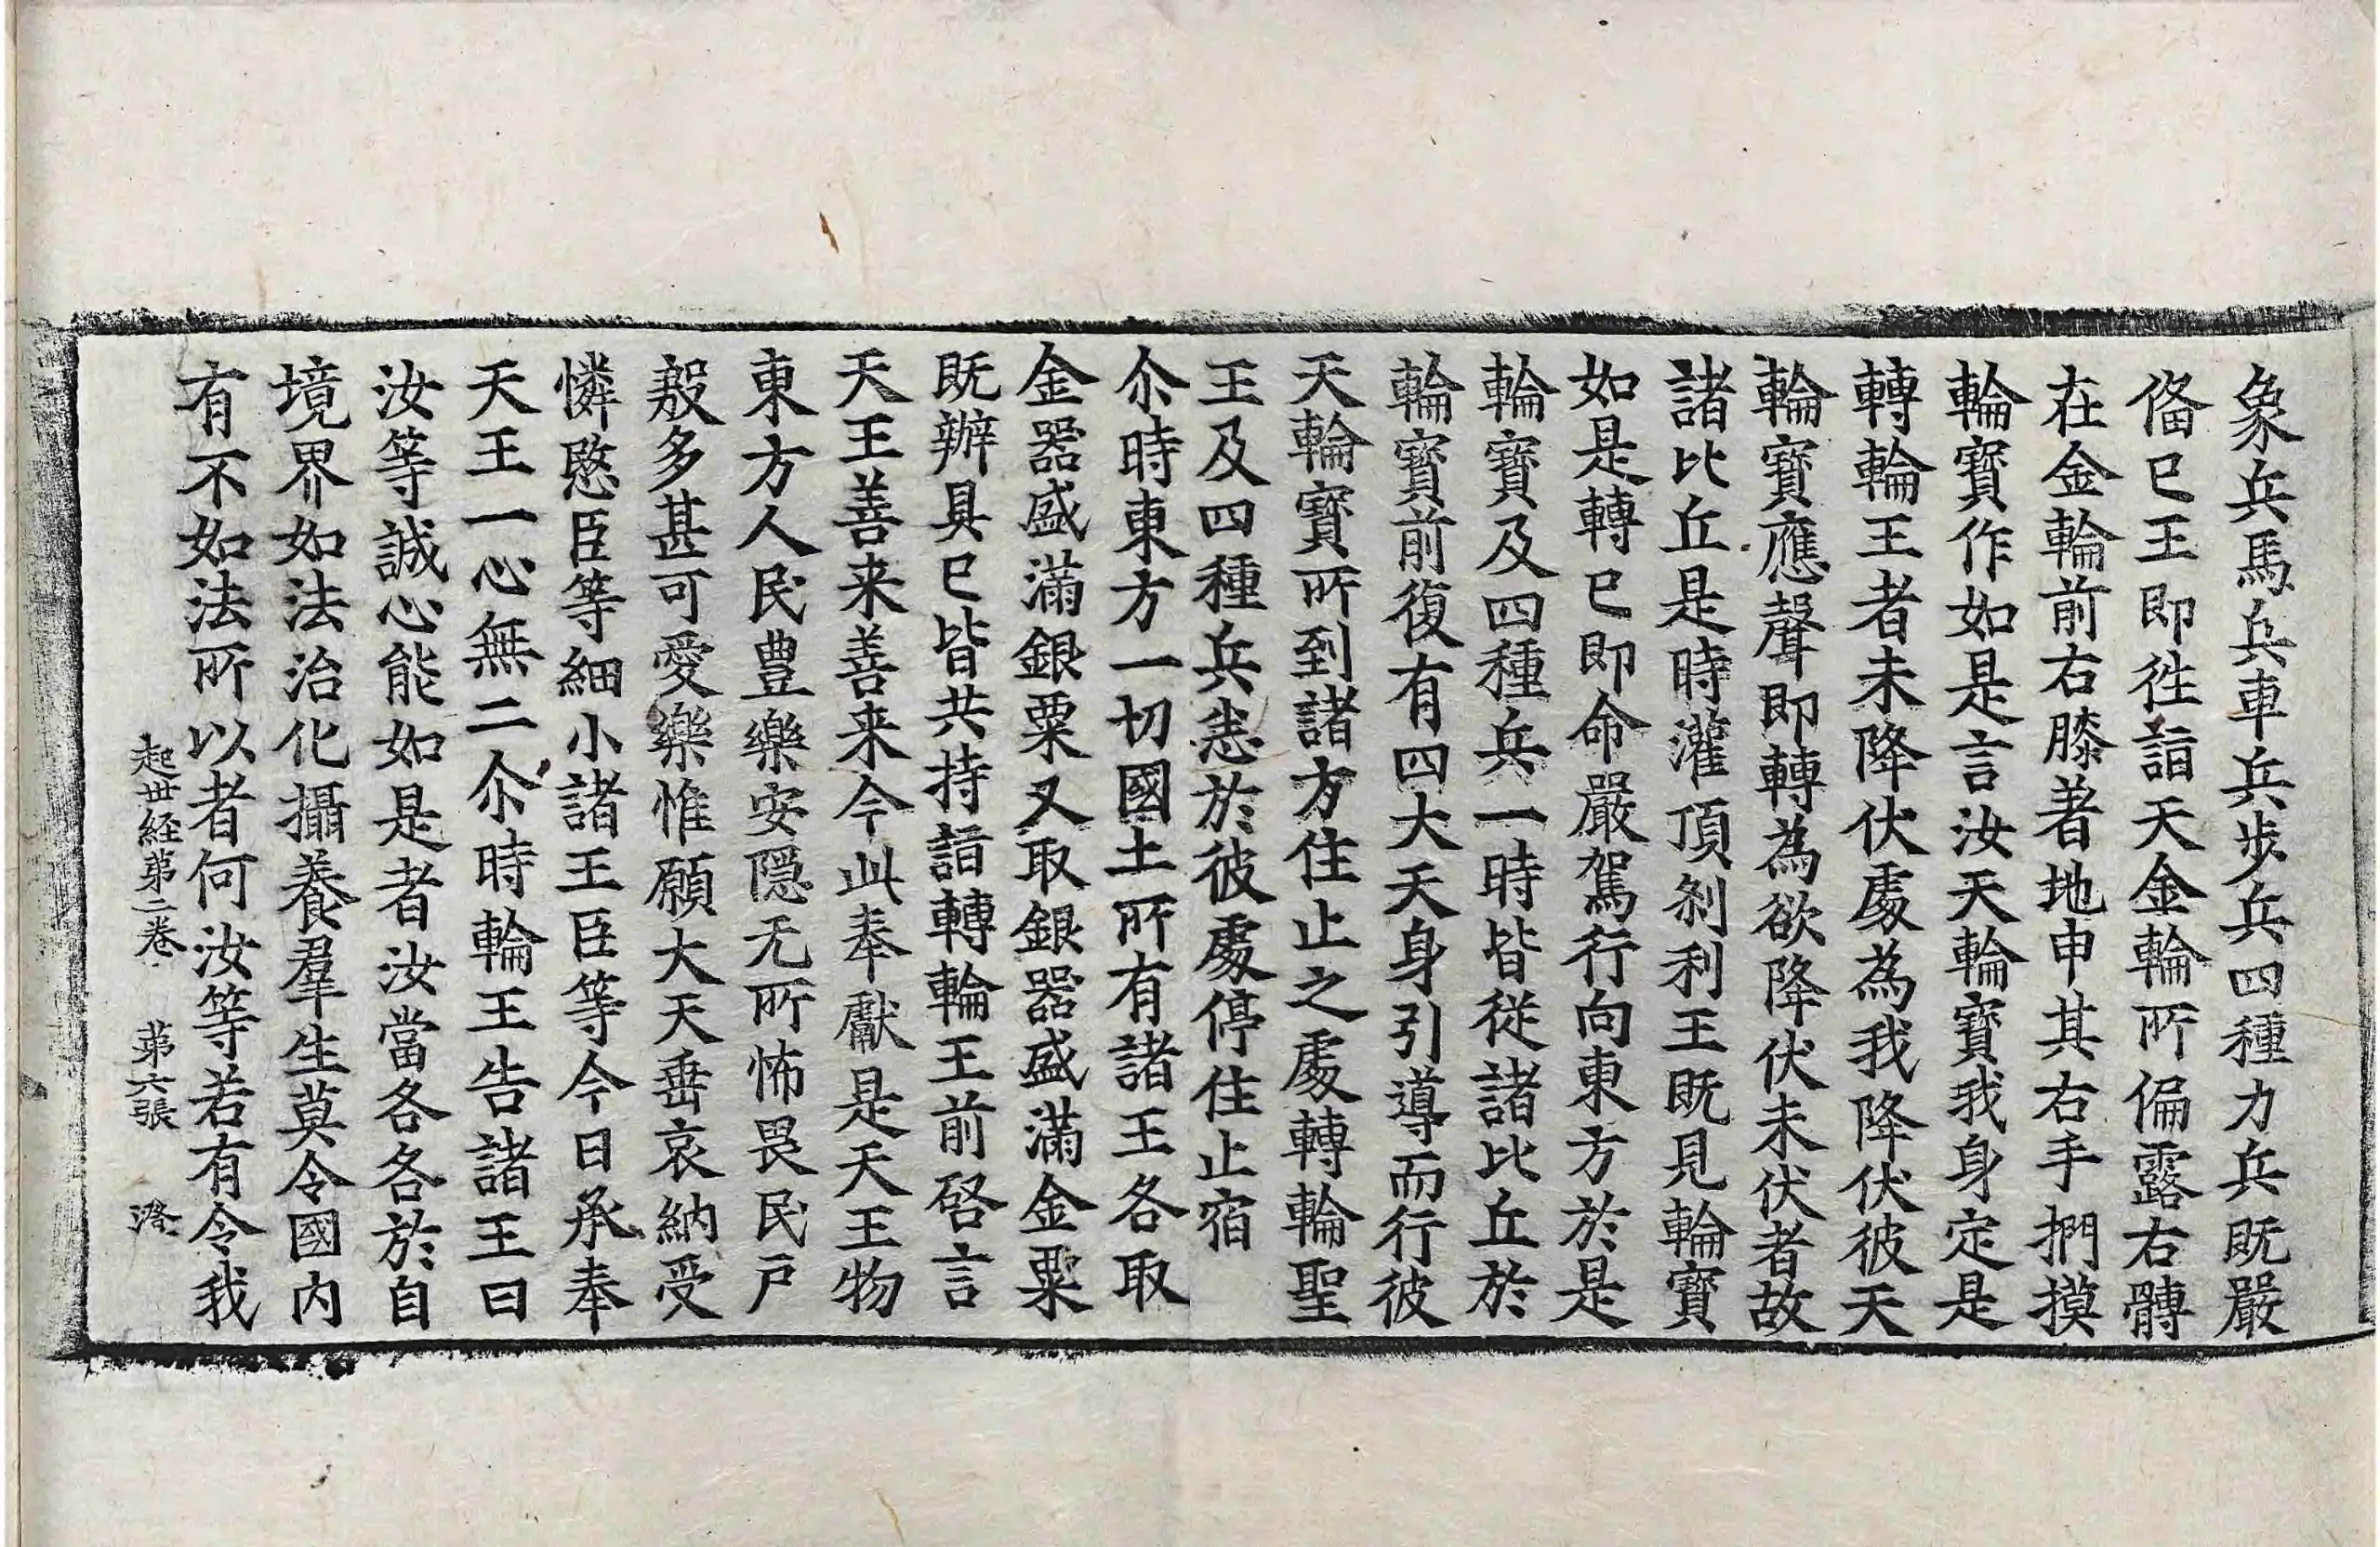 象兵馬兵車兵步兵四種力兵既嚴
俻已王即徃詣天金輪所偏露右髆
在金輪前右膝著地申其右手捫摸
輪寶作如是言汝天輪寶我身定是
轉輪王者未降伏處為我降伏彼天
輪寶應聲即轉為欲降伏未伏者故
諸比丘是時灌頂剎利王既見輪寶
如是轉已即命嚴駕行向東方於是
輪寶及四種兵一時皆從諸比丘於
輪寶前復有四大天身引導而行彼
天輪寶所到諸方住止之處轉輪聖
王及四種兵悉於彼處停住止宿
尒時東方一切國土所有諸王各取
金器盛滿銀粟又取銀器盛滿金粟
既辦具已皆共持詣轉輪王前啓言
天王善来善来今此奉獻是天王物
東方人民豊樂安隱无所怖畏民戶
殷多甚可愛樂惟願大天垂哀納受
憐愍臣等細小諸王臣等今日承奉
天王一心無二尒時輪王告諸王曰
汝等誠心能如是者汝當各各於自
境界如法治化攝養羣生莫令國內
有不如法所以者何汝等若有令我
起世経第二卷 第六張 澄